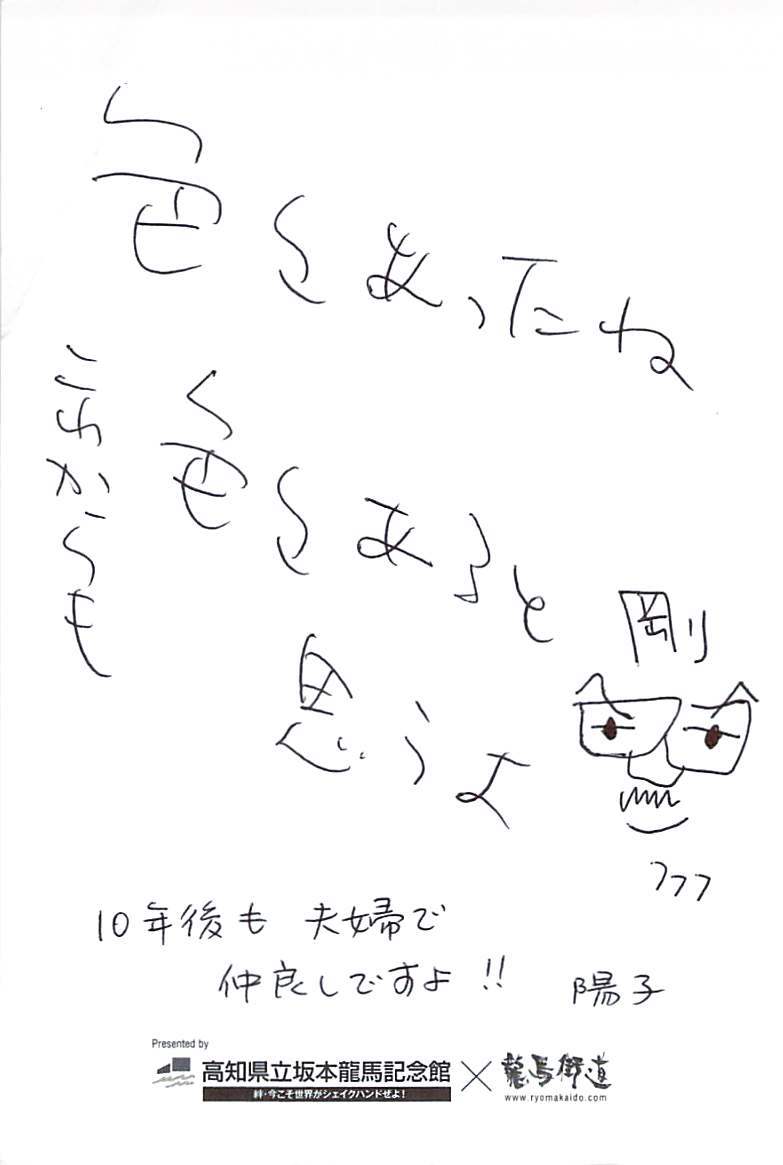 色々あったね
これからも
色々あると
思うよ
剛
フフフ
10年後も 夫婦で
仲良しですよ!!
陽子
Presented by
高知県立坂本龍馬記念館 × 龍馬街道
絆・今こそ世界がシェイクハンドぜよ!
www.ryomakaido.com